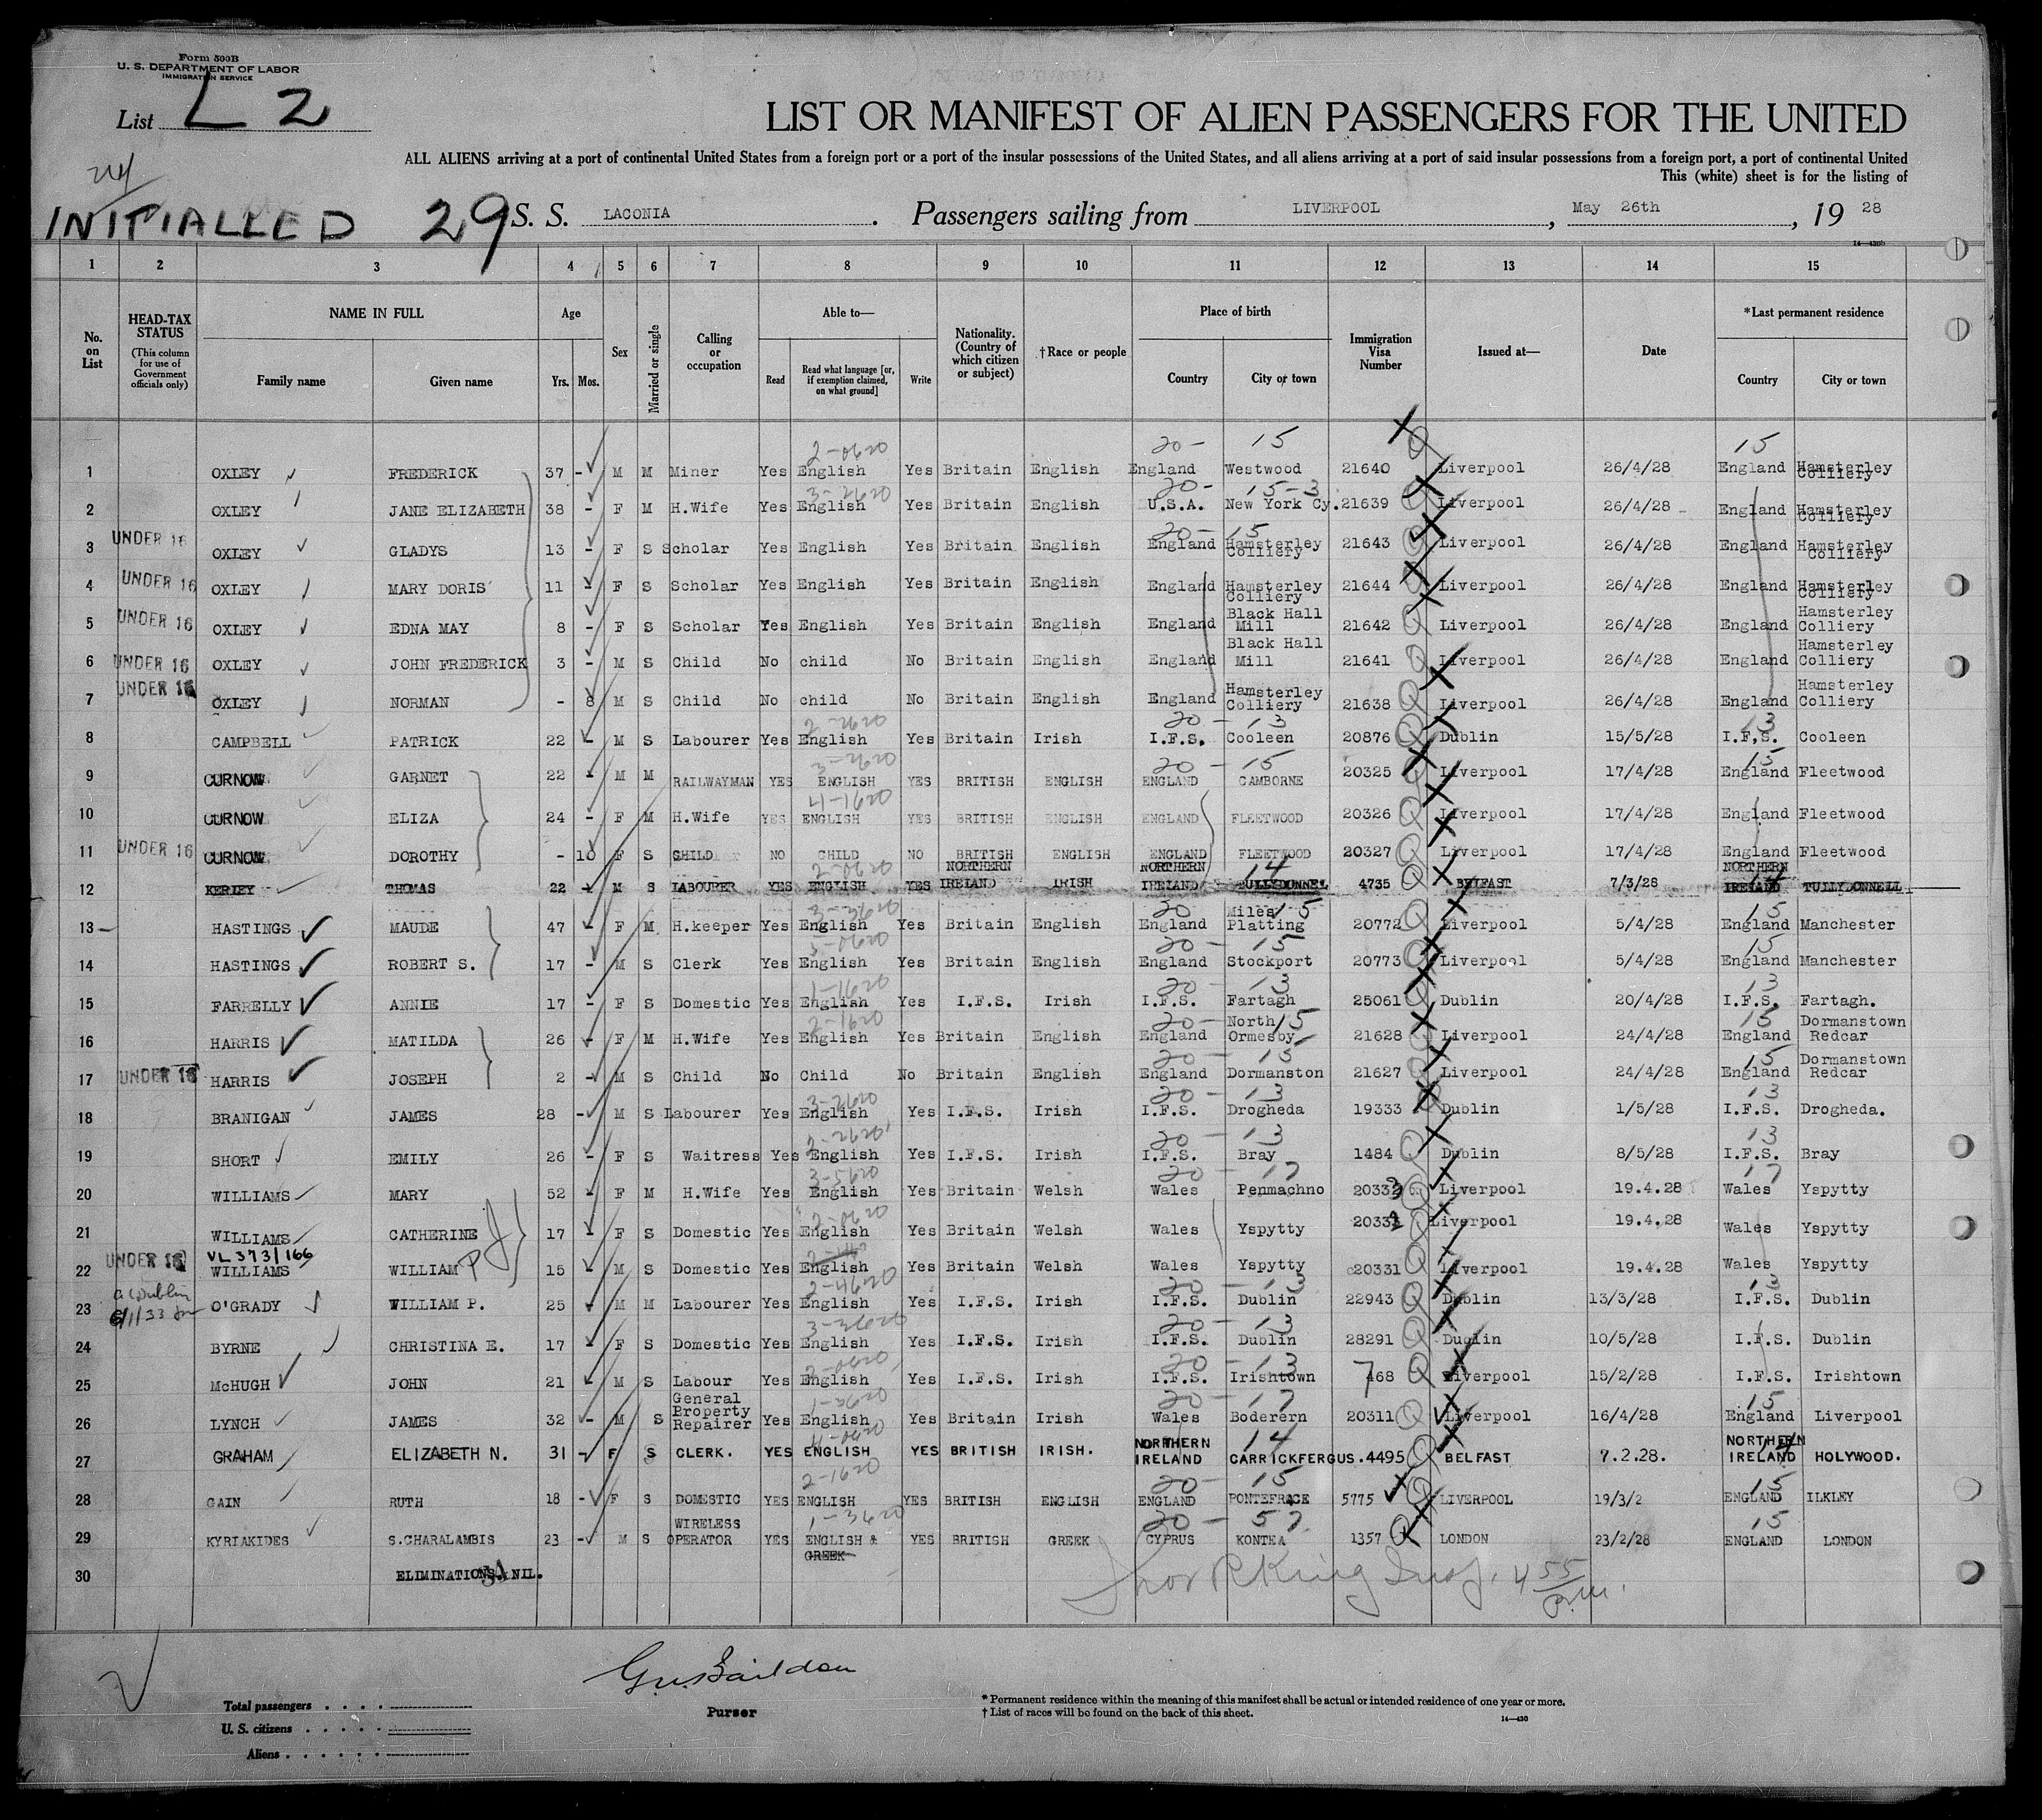 Form 500B
U. S. DEPARTMENT OF LABOR
IMMIGRATION SERVICE
List L 2
LIST OR MANIFEST OF ALIEN PASSENGERS FOR THE UNITED
ALL ALIENS arriving at a port of continental United States from a foreign port or a port of the insular possessions of the United States, and all aliens arriving at a port of said insular possessions from a foreign port, a port of continental United
This (white) sheet is for the listing of
INITIALLED 29 S. S. LACONIA . Passengers sailing from LIVERPOOL , May 26th , 19 28
14—430b
1 2 3 4 5 6 7 8 9 10 11 12 13 14 15
No. on List
HEAD-TAX STATUS (This column for use of Government officials only)
NAME IN FULL Family name Given name
Age Yrs. Mos.
Sex
Married or single
Calling or occupation
Able to— Read Read what language [or, if exemption claimed, on what ground] Write
Nationality. (Country of which citizen or subject)
† Race or people
Place of birth Country City or town
Immigration Visa Number
Issued at—
Date
*Last permanent residence Country City or town
2-0620 20- 15 15
1 OXLEY FREDERICK 37 - M M Miner Yes English Yes Britain English England Westwood 21640 Liverpool 26/4/28 England Hamsterley Colliery
3-2620 20- 15-3
2 OXLEY JANE ELIZABETH 38 - F M H.Wife Yes English Yes Britain English U.S.A. New York Cy. 21639 Liverpool 26/4/28 England Hamsterley Colliery
20- 15
3 UNDER 16 OXLEY GLADYS 13 - F S Scholar Yes English Yes Britain English England Hamsterley Colliery 21643 Liverpool 26/4/28 England Hamsterley Colliery
4 UNDER 16 OXLEY MARY DORIS 11 - F S Scholar Yes English Yes Britain English England Hamsterley Colliery 21644 Liverpool 26/4/28 England Hamsterley Colliery
5 UNDER 16 OXLEY EDNA MAY 8 - F S Scholar Yes English Yes Britain English England Black Hall Mill 21642 Liverpool 26/4/28 England Hamsterley Colliery
6 UNDER 16 OXLEY JOHN FREDERICK 3 - M S Child No child No Britain English England Black Hall Mill 21641 Liverpool 26/4/28 England Hamsterley Colliery
7 UNDER 16 OXLEY NORMAN - 8 M S Child No child No Britain English England Hamsterley Colliery 21638 Liverpool 26/4/28 England Hamsterley Colliery
2-2620 20 - 13 13
8 CAMPBELL PATRICK 22 - M S Labourer Yes English Yes Britain Irish I.F.S. Cooleen 20876 Dublin 15/5/28 I.F.S. Cooleen
3-2620 20 - 15 15
9 CURNOW GARNET 22 - M M RAILWAYMAN YES ENGLISH YES BRITISH ENGLISH ENGLAND CAMBORNE 20325 Liverpool 17/4/28 England Fleetwood
4-1620
10 CURNOW ELIZA 24 - F M H.Wife YES ENGLISH YES BRITISH ENGLISH ENGLAND FLEETWOOD 20326 Liverpool 17/4/28 England Fleetwood
11 UNDER 16 CURNOW DOROTHY - 10 F S CHILD NO CHILD NO BRITISH ENGLISH ENGLAND FLEETWOOD 20327 Liverpool 17/4/28 England Fleetwood
2-0620 14 14
12 KERLEY THOMAS 22 - M S LABOURER YES ENGLISH YES NORTHERN IRELAND IRISH NORTHERN IRELAND TULLYDONNEL 4735 BELFAST 7/3/28 NORTHERN IRELAND TULLYDONNELL
3-3620 20 15 15
13 HASTINGS MAUDE 47 - F M H.keeper Yes English Yes Britain English England Miles Platting 20772 Liverpool 5/4/28 England Manchester
3-0620 20 - 15 15
14 HASTINGS ROBERT S. 17 - M S Clerk Yes English Yes Britain English England Stockport 20773 Liverpool 5/4/28 England Manchester
1-1620 20 - 13 13
15 FARRELLY ANNIE 17 - F S Domestic Yes English Yes I.F.S. Irish I.F.S. Fartagh 25061 Dublin 20/4/28 I.F.S. Fartagh.
2-1620 20 - 15 15
16 HARRIS MATILDA 26 - F M H.Wife Yes English Yes Britain English England North Ormesby 21628 Liverpool 24/4/28 England Dormanstown Redcar
20 - 15 15
17 UNDER 16 HARRIS JOSEPH 2 - M S Child No Child No Britain English England Dormanston 21627 Liverpool 24/4/28 England Dormanstown Redcar
3-2620 20 - 13 13
18 BRANIGAN JAMES 28 - M S Labourer Yes English Yes I.F.S. Irish I.F.S. Drogheda 19333 Dublin 1/5/28 I.F.S. Drogheda.
2-2620 20 - 13 13
19 SHORT EMILY 26 - F S Waitress Yes English Yes I.F.S. Irish I.F.S. Bray 1484 Dublin 8/5/28 I.F.S. Bray
3-5620 20 - 17 17
20 WILLIAMS MARY 52 - F M H.Wife Yes English Yes Britain Welsh Wales Penmachno 20333 Liverpool 19.4.28 Wales Yspytty
2-0620
21 WILLIAMS CATHERINE 17 - F S Domestic Yes English Yes Britain Welsh Wales Yspytty 20332 Liverpool 19.4.28 Wales Yspytty
VL 373/166
22 UNDER 16 WILLIAMS WILLIAM 15 - M S Domestic Yes English Yes Britain Welsh Wales Yspytty 20331 Liverpool 19.4.28 Wales Yspytty
2-4620 20 - 13 13
23 O'GRADY WILLIAM P. 25 - M M Labourer Yes English Yes I.F.S. Irish I.F.S. Dublin 22943 Dublin 13/3/28 I.F.S. Dublin
3-3620 20 - 13
24 BYRNE CHRISTINA E. 17 - F S Domestic Yes English Yes I.F.S. Irish I.F.S. Dublin 28291 Dublin 10/5/28 I.F.S. Dublin
2-0620 20 - 13
25 McHUGH JOHN 21 - M S Labour Yes English Yes I.F.S. Irish I.F.S. Irishtown 768 Liverpool 15/2/28 I.F.S. Irishtown
1-3620 20 - 17 15
26 LYNCH JAMES 32 - M S General Property Repairer Yes English Yes Britain Irish Wales Boderern 20311 Liverpool 16/4/28 England Liverpool
4-0620 14 14
27 GRAHAM ELIZABETH N. 31 - F S CLERK. YES ENGLISH YES BRITISH IRISH. NORTHERN IRELAND CARRICKFERGUS. 4495 BELFAST 7.2.28. NORTHERN IRELAND HOLYWOOD.
2-1620 20- 15 15
28 GAIN RUTH 18 - F S DOMESTIC YES ENGLISH YES BRITISH ENGLISH ENGLAND PONTEFRACE 5775 LIVERPOOL 19/3/2 ENGLAND ILKLEY
1-3620 20 - 57 15
29 KYRIAKIDES S.CHARALAMBIS 23 - M S WIRELESS OPERATOR YES ENGLISH & GREEK YES BRITISH GREEK CYPRUS KONTEA 1357 LONDON 23/2/28 ENGLAND LONDON
30 ELIMINATIONS. NIL.
King Insp. 4 55 p.m.
Purser
Total passengers
U. S. citizens
Aliens
* Permanent residence within the meaning of this manifest shall be actual or intended residence of one year or more.
† List of races will be found on the back of this sheet.
14—430